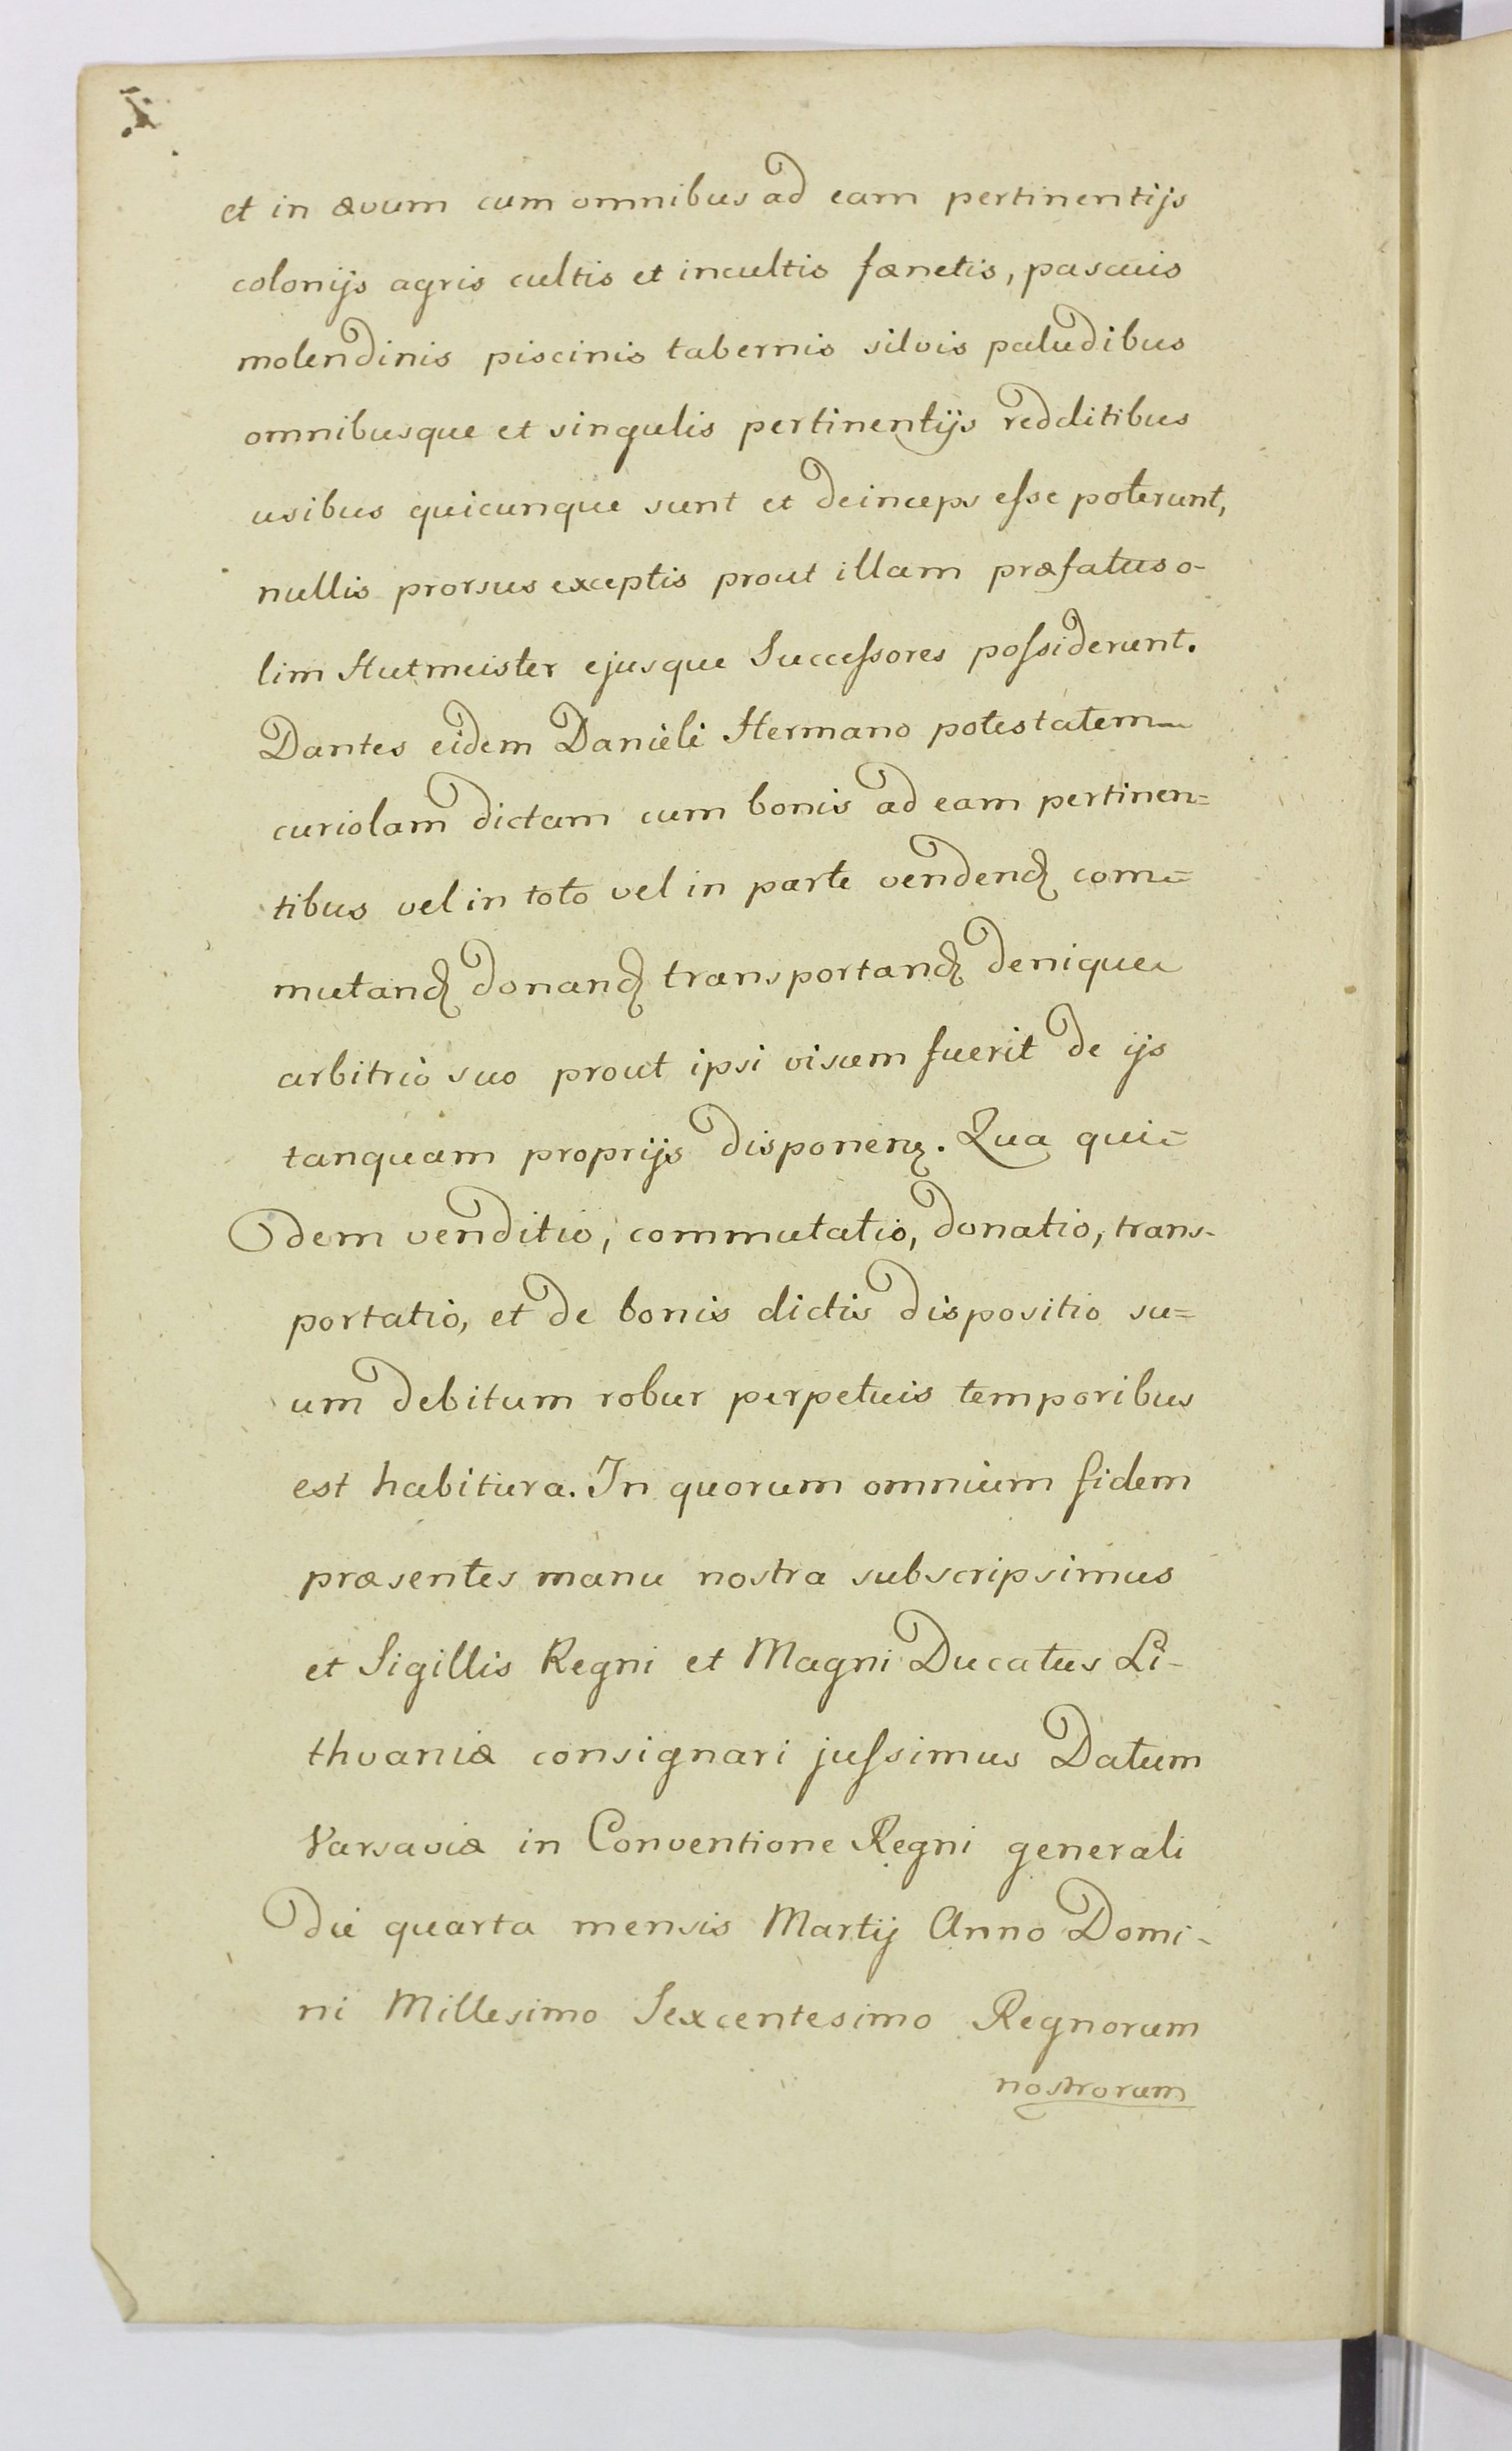 et in ævum cum omnibus ad eam pertinentijs
colonijs agris cultis et incultis fænetis, pascuis
molendinis piscinis tabernis silvis paludibus
omnibusque et singulis pertinentijs redditibus
usibus quicunque sunt et deinceps eſse poterunt,
nullis prorsus exceptis prout illam præfatus o-
lim Hutmeister ejusque Succeſsores poſsiderunt.
Dantes eidem Danieli Hermano potestatem
curiolam dictam cum bonis ad eam pertinen=
tibus vel in toto vel in parte vendend com=
mutand donand transportand denique
arbitrio suo prout ipsi visum fuerit de ijs
tanquam proprijs disponen. Qua qui=
dem venditio, commutatio, donatio, trans-
portatio, et de bonis dictis dispositio su=
um debitum robur perpetuis temporibus
est habitura. In quorum omnium fidem
præsentes manu nostra subscripsimus
et Sigillis Regni et Magni Ducatus Li-
thvaniæ consignari juſsimus Datum
Varsaviæ in Conventione Regni generali
die quarta mensis Martij Anno Domi-
ni Millesimo Sexcentesimo Regnorum
nostrorum